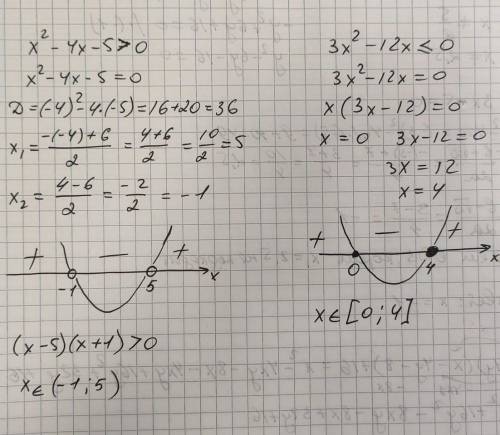 x² - 4x - 5 > 0
x² - 4x - 5 = 0
D = (-4)² - 4·(-5) = 16 + 20 = 36
x₁ = (-(-4) + 6)/2 = (4 + 6)/2 = 10/2 = 5
x₂ = (4 - 6)/2 = -2/2 = -1
+ − +
-1 5 x
(x - 5)(x + 1) > 0
x ∈ (-1; 5)
3x² - 12x ≤ 0
3x² - 12x = 0
x(3x - 12) = 0
x = 0 3x - 12 = 0
3x = 12
x = 4
+ − +
0 4 x
x ∈ [0; 4]